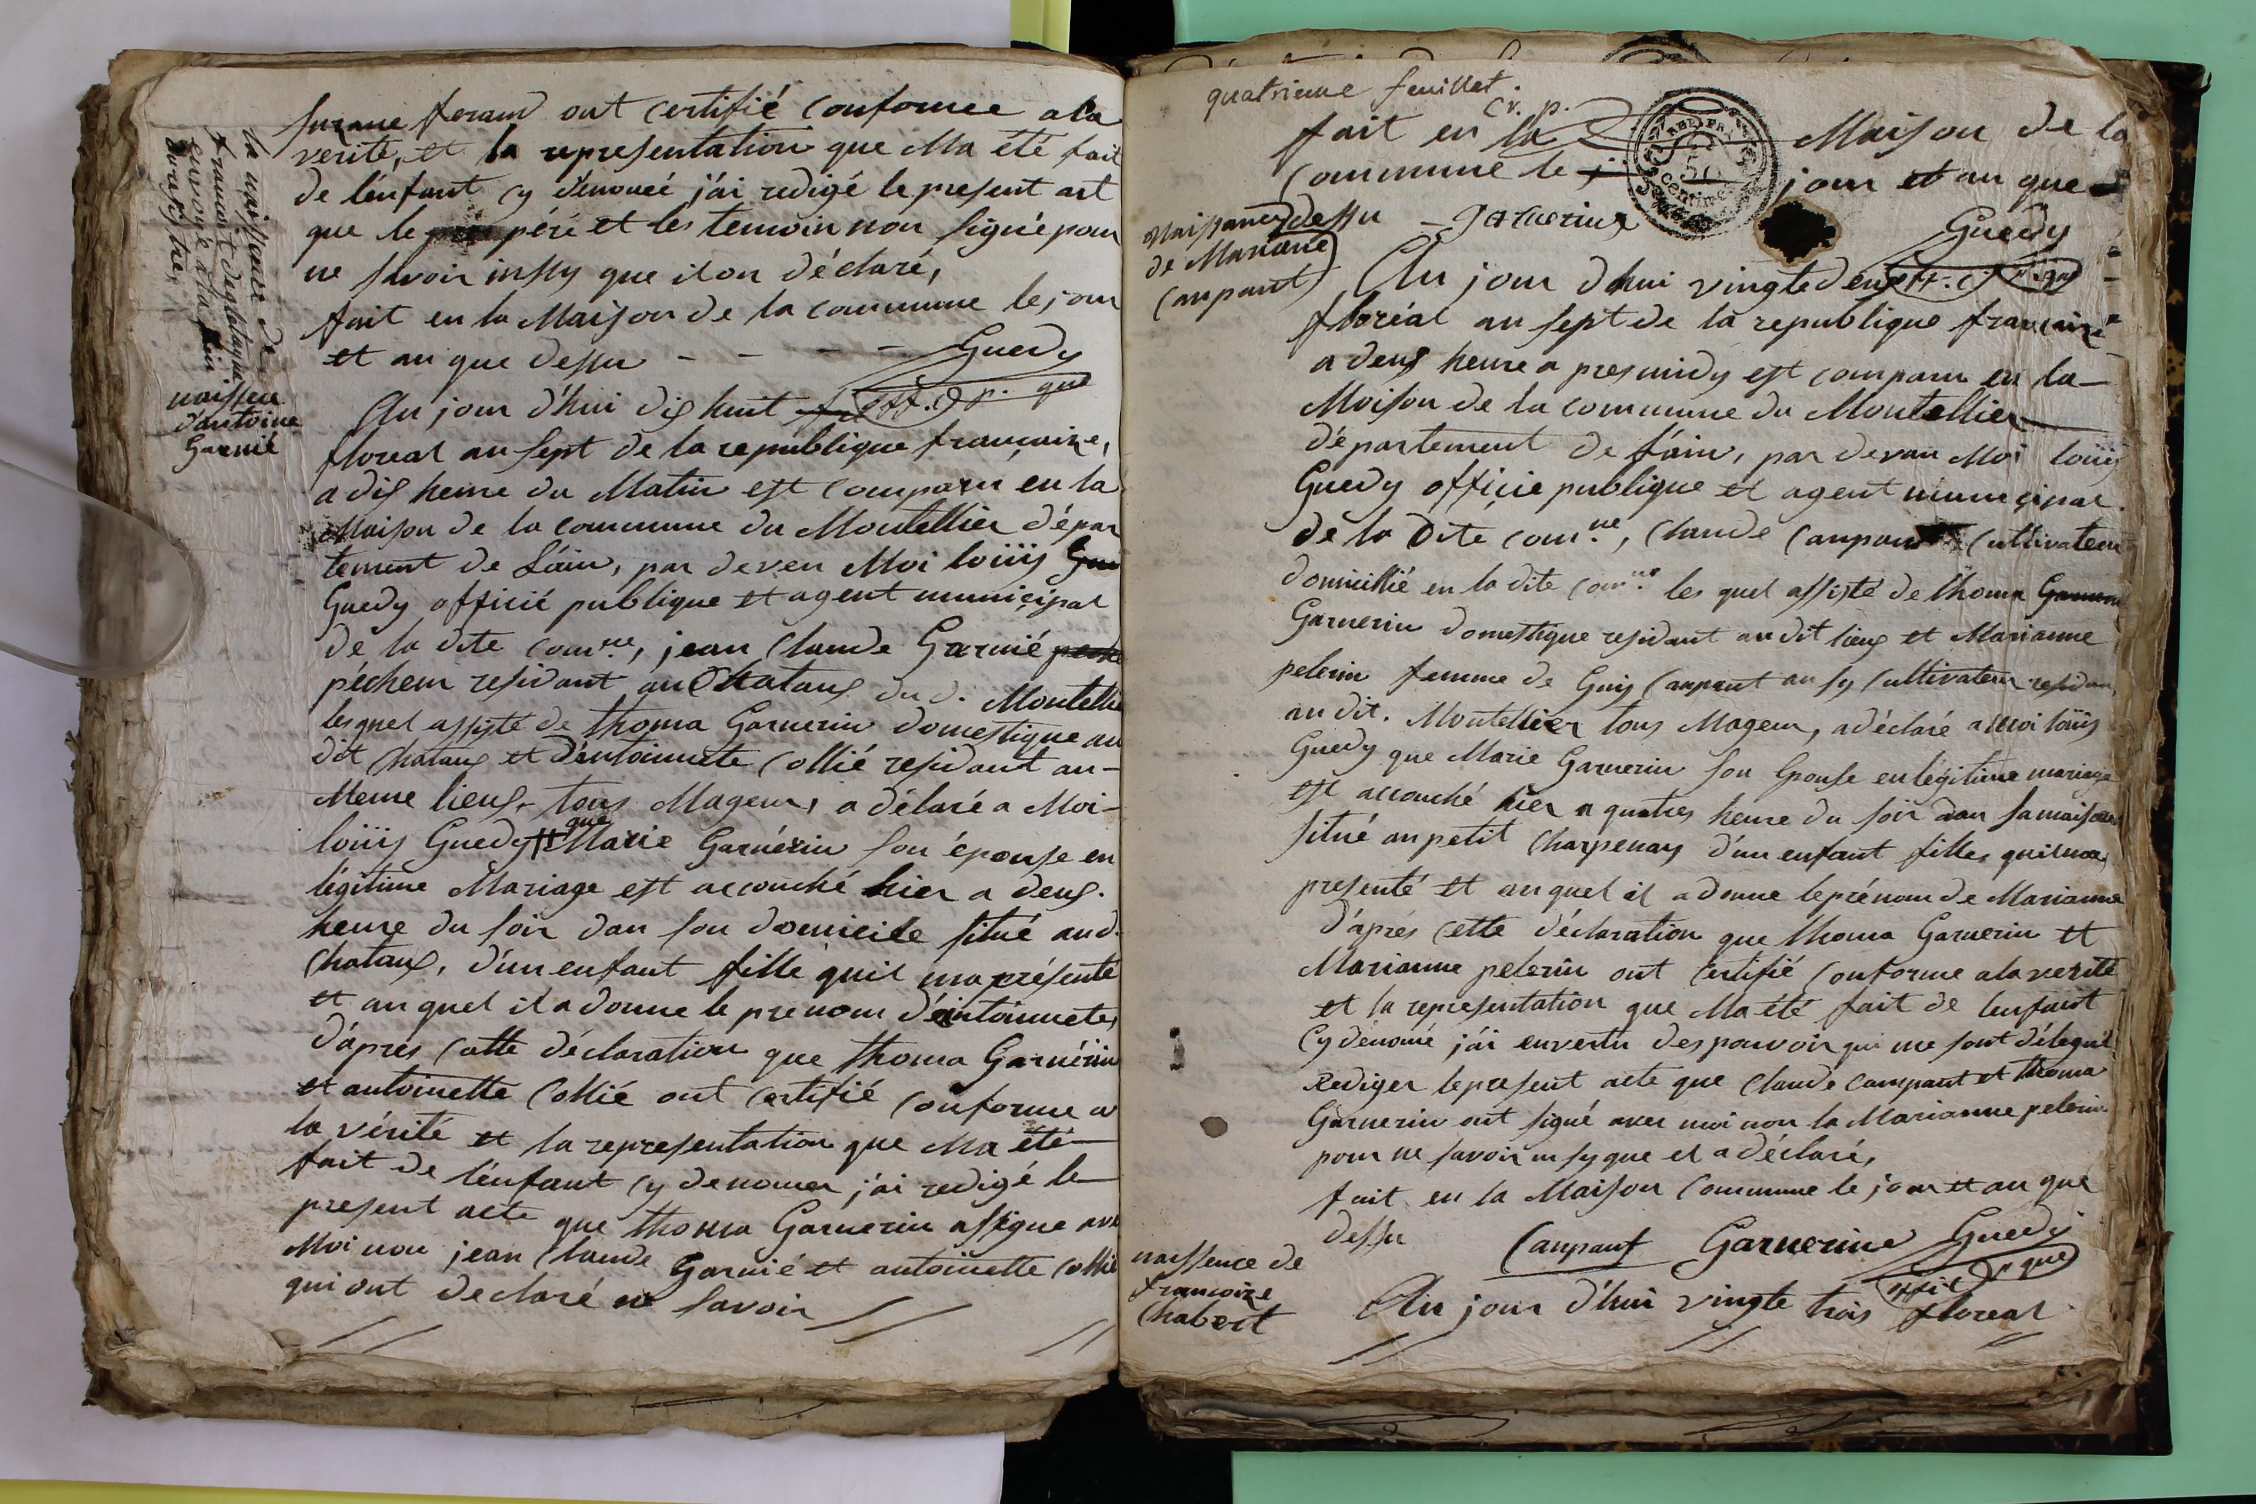 la naissence de
francoit deglatague
envoyé a la fin
du registre,
naissence
d'antoine
Garnié
suzane feraud ont certifié conforme a la
verité, et la representation que Ma été fait
de l'énfant cy dénomeé j'ai redigé le present act
que le péré et les temoin non signé pour
ne savoir inssy que il on déclaré,
fait en la Maison de la commune le jour
et an que dessu - - - - Guedy
off. p. que
Au jour d'hui dix huit
floreal an sept de la republique francaize,
a dix heure du Matin est comparu en la
Maison de la commune du Montellier dépar
tement de L'ain, par deven Moi loüis
Guedy officié publique et agent municipal
de la dite com.ne, jean Claude Garnié
pécheur residant au Chataux du d. Montellie
lesquel assisté de thoma Garnerin domestique au
dit Chataux et d'entoinnete Collié residant au-
Meme lieux, tous Mageur, a délaré a Moi-
loüis Guedy que Marie Garnérin son épouse en
légitime Mariage est accouché hier a deux.
heure du soir dan son domicile situé aud.
Chataux, d'un enfant fille quil ma présenté
et au quel il a donne le prenom d'éntoinnete,
d'aprés cette déclaration que thoma Garnérin
et antoinette Collié ont certifié conforme a
la vérité et la representation que Ma été
fait de l'énfant cy denomer j'ai redigé le
present acte que thoma Garnerin a signe ave
Moi non jean Claude Garnié et antoinette Collié
qui ont declaré ne savoir
quatrieme feuillet.
cv. p.
fait en la Maison de la
commune le jour et an que
dessu - garnerine Guedy
off. p. que
REP. FRA
50
centimes
Naissance
de Mariane
Canpant
Au jour d'hui vingte deux
floréal an sept de la republique francaize
a deux heure a presmidy est comparu en la
Maison de la commune du Montellier
département de l'ain, par devan Moi loüis
Guedy officie publique et agent municipal
de la dite com.ne, Claude Canpant Cultivateur
domicillié en la dite com.ne les quel assisté de thoma
Garnerin domestique residant au dit lieux et Marianne
pelerin femme de Guy Canpant au sy Cultivateur residan
au dit. Montellier tous Mageur, a déclaré a Moi loüis
Guedy que Marie Garnerin son Epouse en légitime mariage
est accouché hier a quatres heure du soir dan sa maison
situé au petit Charpenay d'un enfant filles quil ma
presenté et au quel il a donne le prénom de Marianne
d'áprés cette déclaration que thoma Garnerin et
Marianne pelerin ont certifié conforme a la verité
et la representation que Ma été fait de lenfant
Cy dénomé j'ái envertu des pouvoir qui me sont délegué
rediger le present acte que Claude Canpant et thoma
Garnerin ont signé avec moi non la Marianne pelerin
pour ne savoir insy que el a déclaré,
fait en la Maison Commune le jour et an que
dessu Canpant Garnerine Guedy
offi. p. que
naissence de
francoize
Chabert
Au jour d'hui vingte trois floreal